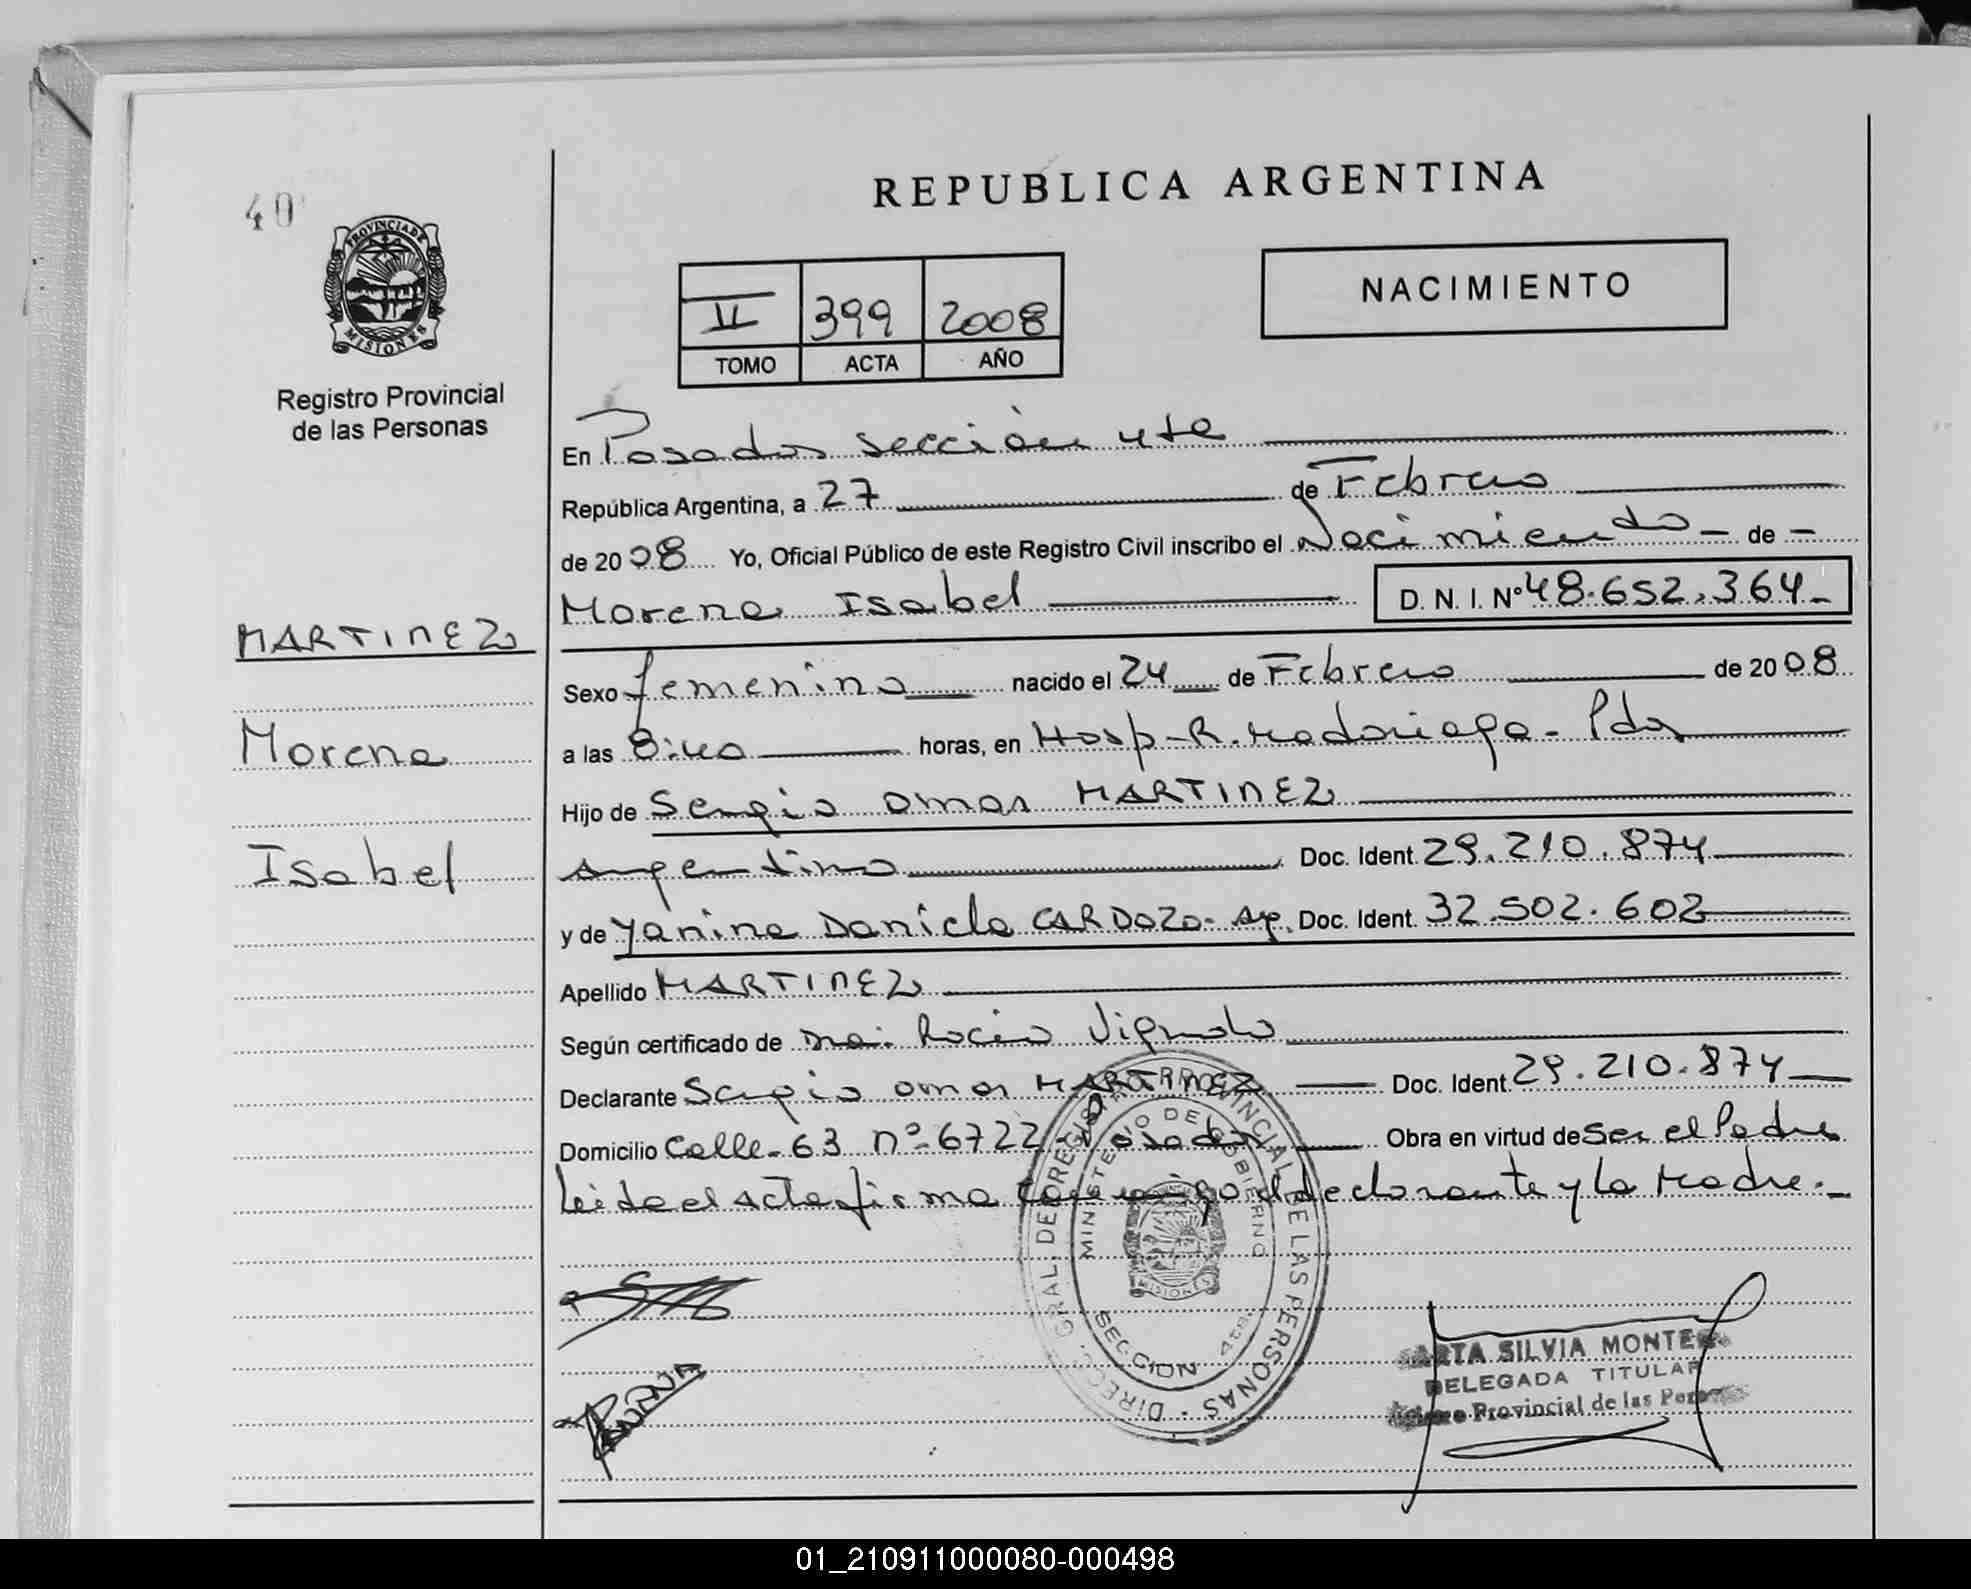 REPUBLICA ARGENTINA
40
PROVINCIA DE
MISIONES
Registro Provincial
de las Personas
II 399 2008
TOMO ACTA AÑO
NACIMIENTO
En Posadas sección 4ta
República Argentina, a 27 de Febrero
de 2008 Yo, Oficial Público de este Registro Civil inscribo el Nacimiento - de -
Morena Isabel D. N. I. Nº 48.652.364-
MARTINEZ
Morena
Isabel
Sexo femenino nacido el 24 de Febrero de 2008
a las 8:40 horas, en Hosp-R. Madariaga- Pdas
Hijo de Sergio Omar MARTINEZ
Argentino Doc. Ident. 29.210.874
y de Yanina Daniela CARDOZO- Arg. Doc. Ident. 32.502.602
Apellido MARTINEZ
Según certificado de Rocio
Declarante Sergio Omar MARTINEZ Doc. Ident. 29.210.874
Domicilio Calle-63 nº-6722 Posadas Obra en virtud de Ser el Padre
leida el acta firma conmigo el declarante y la Madre.-
DIREC. GRAL. DE REGISTRO PROVINCIAL DE LAS PERSONAS
MINISTERIO DE GOBIERNO
MISIONES
SECCION 4ta.
ARTA SILVIA MONTE
DELEGADA TITULAR
Provincial de las Perso
01_210911000080-000498